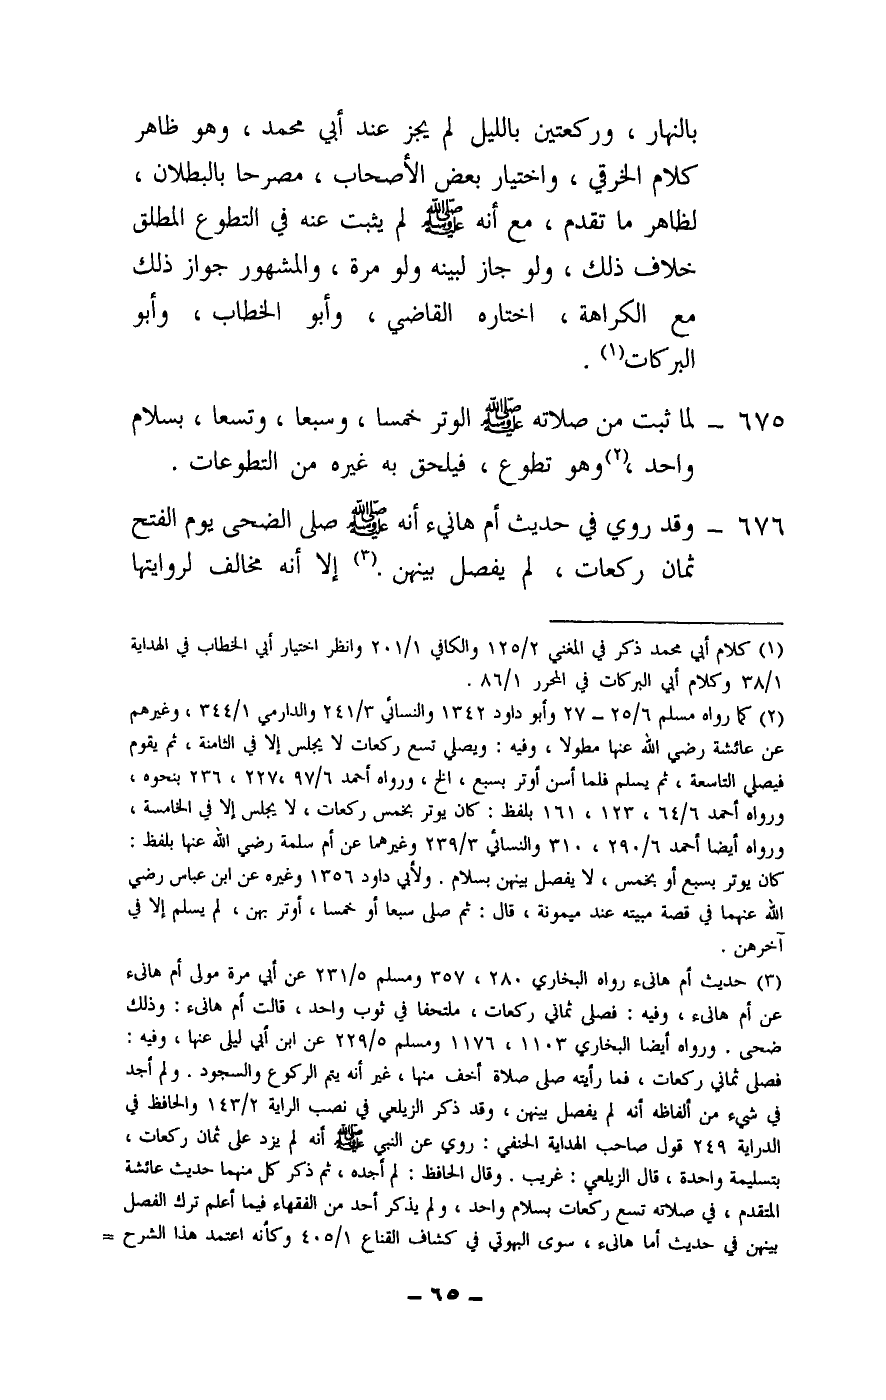 بالنهار ، وركعتين بالليل لم يجز عند أبي محمد ، وهو ظاهر
كلام الخرقي ، واختيار بعض الأصحاب ، مصرحا بالبطلان ،
لظاهر ما تقدم ، مع أنه ﷺ لم يثبت عنه في التطوع المطلق
خلاف ذلك ، ولو جاز لبينه ولو مرة ، والمشهور جواز ذلك
مع الكراهة ، اختاره القاضي ، وأبو الخطاب ، وأبو
البركات(١) .
٦٧٥ – لما ثبت من صلاته ﷺ الوتر خمسا ، وسبعا ، وتسعا ، بسلام
واحد ،(٢) وهو تطوع ، فيلحق به غيره من التطوعات .
٦٧٦ – وقد روي في حديث أم هانيء أنه ﷺ صلى الضحى يوم الفتح
ثمان ركعات ، لم يفصل بينهن .(٣) إلا أنه مخالف لروايتها
(١) كلام أبي محمد ذكر في المغني ١٢٥/٢ والكافي ٢٠١/١ وانظر اختيار أبي الخطاب في الهداية
٣٨/١ وكلام أبي البركات في المحرر ٨٦/١ .
(٢) كما رواه مسلم ٢٥/٦ – ٢٧ وأبو داود ١٣٤٢ والنسائي ٢٤١/٣ والدارمي ٣٤٤/١ ، وغيرهم
عن عائشة رضي الله عنها مطولا ، وفيه : ويصلي تسع ركعات لا يجلس إلا في الثامنة ، ثم يقوم
فيصلي التاسعة ، ثم يسلم فلما أسن أوتر بسبع ، الخ ، ورواه أحمد ٩٧/٦ ،٢٢٧ ، ٢٣٦ بنحوه ،
ورواه أحمد ٦٤/٦ ، ١٢٣ ، ١٦١ بلفظ : كان يوتر بخمس ركعات ، لا يجلس إلا في الخامسة ،
ورواه أيضا أحمد ٢٩٠/٦ ، ٣١٠ والنسائي ٢٣٩/٣ وغيرهما عن أم سلمة رضي الله عنها بلفظ :
كان يوتر بسبع أو بخمس ، لا يفصل بينهن بسلام . ولأبي داود ١٣٥٦ وغيره عن ابن عباس رضي
الله عنهما في قصة مبيته عند ميمونة ، قال : ثم صلى سبعا أو خمسا ، أوتر بهن ، لم يسلم إلا في
آخرهن .
(٣) حديث أم هانىء رواه البخاري ٢٨٠ ، ٣٥٧ ومسلم ٢٣١/٥ عن أبي مرة مولى أم هانىء
عن أم هانىء ، وفيه : فصلى ثماني ركعات ، ملتحفا في ثوب واحد ، قالت أم هانىء : وذلك
ضحى . ورواه أيضا البخاري ١١٠٣ ، ١١٧٦ ومسلم ٢٢٩/٥ عن ابن أبي ليلى عنها ، وفيه :
فصلى ثماني ركعات ، فما رأيته صلى صلاة أخف منها ، غير أنه يتم الركوع والسجود . ولم أجد
في شيء من ألفاظه أنه لم يفصل بينهن ، وقد ذكر الزيلعي في نصب الراية ١٤٣/٢ والحافظ في
الدراية ٢٤٩ قول صاحب الهداية الحنفي : روي عن النبي ﷺ أنه لم يزد على ثمان ركعات ،
بتسليمة واحدة ، قال الزيلعي : غريب . وقال الحافظ : لم أجده ، ثم ذكر كل منهما حديث عائشة
المتقدم ، في صلاته تسع ركعات بسلام واحد ، ولم يذكر أحد من الفقهاء فيما أعلم ترك الفصل
بينهن في حديث أما هانىء ، سوى البهوتي في كشاف القناع ٤٠٥/١ وكأنه اعتمد هذا الشرح =
– ٦٥ –